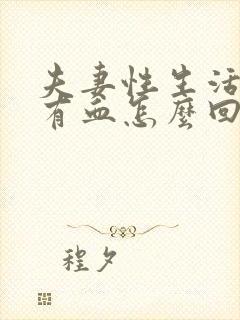 夫妻性生活
有血怎麼回
程夕